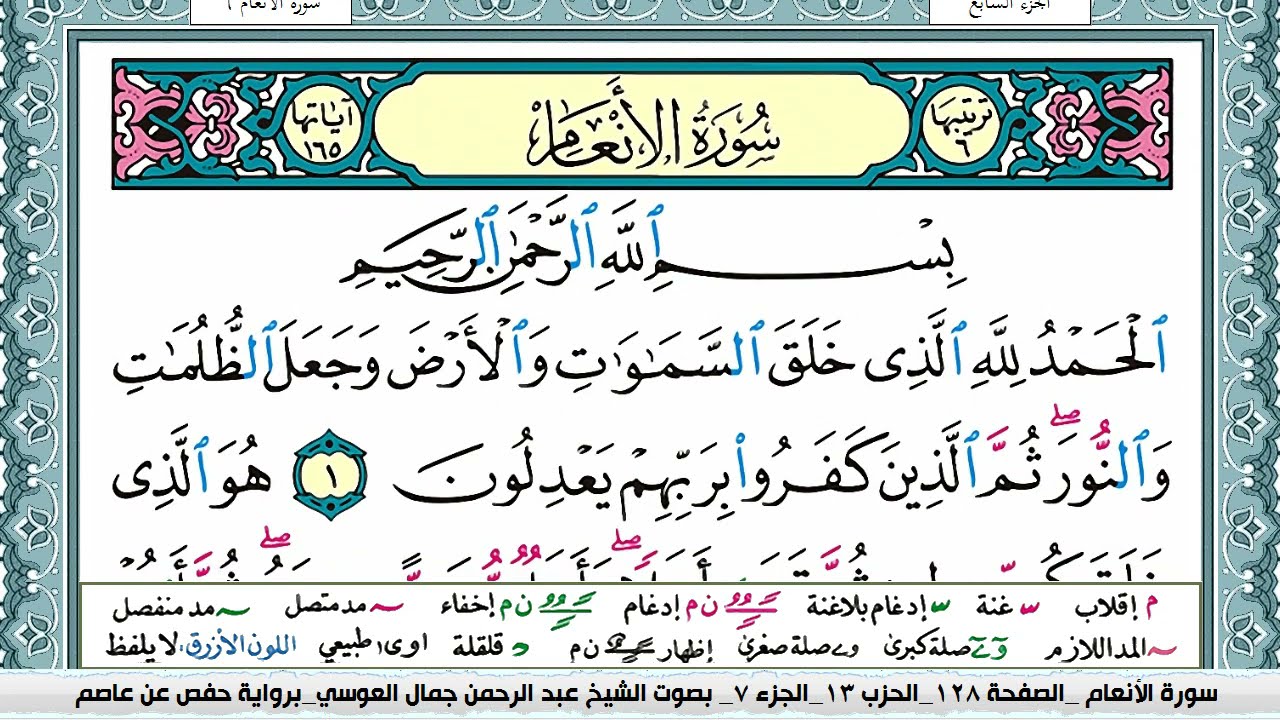 الجزء السابع
سورة الأنعام ٦
ترتيبها ٦
سُورَةُ الأَنْعَامِ
آياتها ١٦٥
بِسْمِ ٱللَّهِ ٱلرَّحْمَٰنِ ٱلرَّحِيمِ
ٱلْحَمْدُ لِلَّهِ ٱلَّذِى خَلَقَ ٱلسَّمَٰوَٰتِ وَٱلْأَرْضَ وَجَعَلَ ٱلظُّلُمَٰتِ
وَٱلنُّورَ ۖ ثُمَّ ٱلَّذِينَ كَفَرُوا۟ بِرَبِّهِمْ يَعْدِلُونَ ١ هُوَ ٱلَّذِى
م إقلاب س غنة س إدغام بلاغنة ن م إدغام ن م إخفاء مد متصل مد منفصل
المد اللازم و ے صلة كبرىٰ و ے صلة صغرىٰ إظهار ن م د قلقلة اوى طبيعي اللون الأزرق: لا يلفظ
سورة الأنعام _الصفحة ١٢٨_الحزب ١٣_الجزء ٧_ بصوت الشيخ عبد الرحمن جمال العوسي_برواية حفص عن عاصم